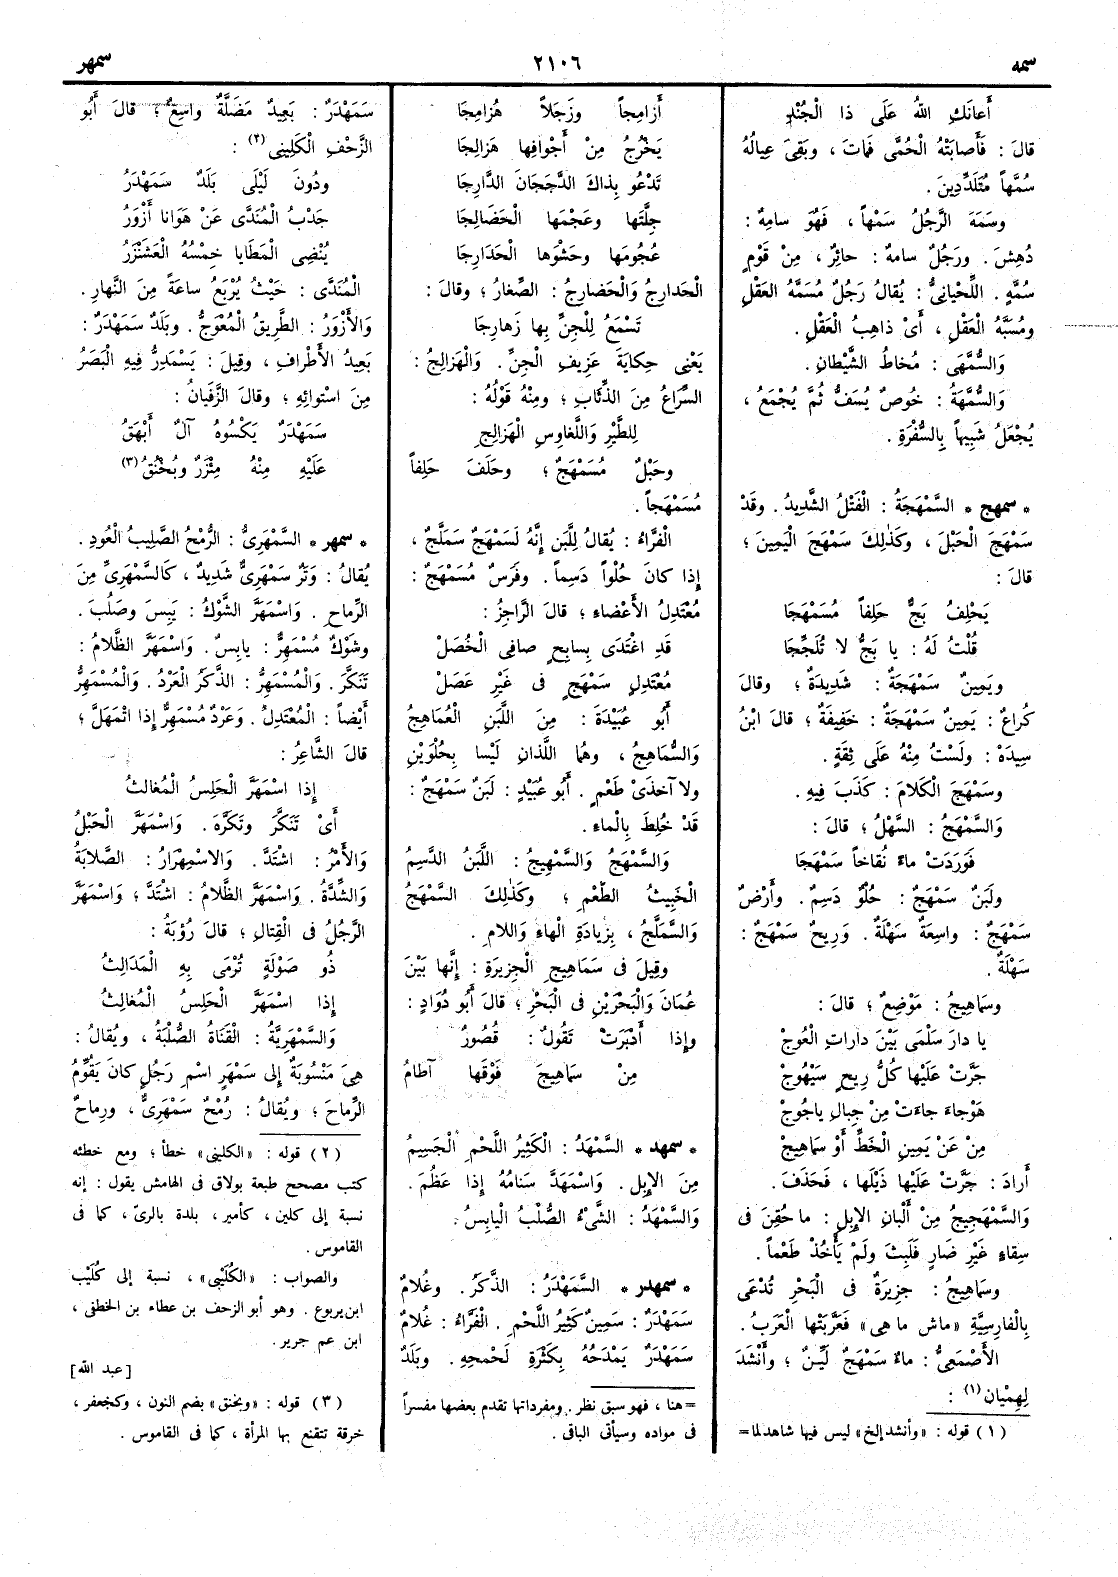 سمه
٢١٠٦
سمهر
أَعانَكِ اللهُ عَلَى ذا الْجُنْلِهِ
قالَ : فَأَصابَتْهُ الْحُمَّى فَماتَ ، وبَقِىَ عِيالُهُ
سُمَّهاً مُتَلَدِّدِينَ .
وسَمَهَ الرَّجُلُ سَمْهاً ، فَهُوَ سامِهٌ :
دُهِشَ . ورَجُلٌ سامِهٌ : حائِرٌ ، مِنْ قَوْمٍ
سُمَّهٍ . اللِّحْيانِىُّ : يُقالُ رَجُلٌ مُسَمَّهُ العَقْلِ
ومُسَبَّهُ الْعَقْلِ ، أَىْ ذاهِبُ الْعَقْلِ .
وَالسُّمَّهَى : مُخاطُ الشَّيْطانِ .
وَالسُّمَّهَةُ : خُوصٌ يُسَفُّ ثُمَّ يُجْمَعُ ،
يُجْعَلُ شَبِيهاً بِالسُّفْرَةِ .
* سمهج * السَّمْهَجَةُ : الْفَتْلُ الشَّدِيدُ . وقَدْ
سَمْهَجَ الْحَبْلَ ، وكَذلِكَ سَمْهَجَ الْيَمِينَ ؛
قالَ :
يَحْلِفُ بَجٌّ حَلِفاً مُسَمْهَجَا
قُلْتُ لَهُ : يا بَجُّ لا تُلَجِّجَا
ويَمِينٌ سَمْهَجَةٌ : شَدِيدَةٌ ؛ وقالَ
كُراعٌ : يَمِينٌ سَمْهَجَةٌ : خَفِيفَةٌ ؛ قالَ ابْنُ
سِيدَهْ : ولَسْتُ مِنْهُ عَلَى ثِقَةٍ .
وسَمْهَجَ الْكَلامَ : كَذَبَ فِيهِ .
وَالسَّمْهَجُ : السَّهْلُ ؛ قالَ :
فَوَرَدَتْ ماءً نُقاخاً سَمْهَجَا
ولَبَنٌ سَمْهَجٌ : حُلْوٌ دَسِمٌ . وأَرْضٌ
سَمْهَجٌ : واسِعَةٌ سَهْلَةٌ . وَرِيحٌ سَمْهَجٌ :
سَهْلَةٌ .
وسَماهِيجُ : مَوْضِعٌ ؛ قالَ :
يا دارَ سَلْمَى بَيْنَ داراتِ الْعُوجْ
جَرَّتْ عَلَيْها كُلُّ رِيحٍ سَيْهُوجْ
هَوْجاءَ جاءَتْ مِنْ جِبالِ ياجُوجْ
مِنْ عَنْ يَمِينِ الْخَطِّ أَوْ سَماهِيجْ
أَرادَ : جَرَّتْ عَلَيْها ذَيْلَها ، فَحَذَفَ .
وَالسَّمْهَجِيجُ مِنْ أَلْبانِ الإِبِلِ : ما حُقِنَ فى
سِقاءٍ غَيْرِ ضارٍ فَلَبِثَ ولَمْ يَأْخُذْ طَعْماً .
وسَماهِيجُ : جَزِيرَةٌ فى الْبَحْرِ تُدْعَى
بِالْفارِسِيَّةِ «ماش ماهى» فَعَرَّبَتْها الْعَرَبُ .
الأَصْمَعِىُّ : ماءٌ سَمْهَجٌ لَيِّنٌ ؛ وأَنْشَدَ
لِهِمْيانَ (١) :
(١) قوله : «وأنشد إلخ» ليس فيها شاهد لما=
أَزامِجاً وزَجَلاً هُزامِجَا
يَخْرُجُ مِنْ أَجْوافِها هَزالِجَا
تَدْعُو بِذاكَ الدَّجَجانَ الدَّارِجَا
جِلَّتَها وعَجْمَها الْحَضالِجَا
عُجُومَها وحَشْوَها الْحَدارِجَا
الْحَدارِجُ وَالْحَضارِجُ : الصِّغارُ ؛ وقالَ :
تَسْمَعُ لِلْجِنِّ بِها زَهارِجَا
يَعْنِى حِكايَةَ عَزِيفِ الْجِنِّ . وَالْهَزالِجُ :
السِّراعُ مِنَ الذِّئابِ ؛ ومِنْهُ قَوْلُهُ :
لِلطَّيْرِ وَاللَّغاوِسِ الْهَزالِجِ
وحَبْلٌ مُسَمْهَجٌ ؛ وحَلَفَ حَلِفاً
مُسَمْهَجاً .
الْفَرَّاءُ : يُقالُ لِلَّبَنِ إِنَّهُ لَسَمْهَجٌ سَمَلَّجٌ ،
إِذا كانَ حُلْواً دَسِماً . وفَرَسٌ مُسَمْهَجٌ :
مُعْتَدِلُ الأَعْضاءِ ؛ قالَ الرَّاجِزُ :
قَدِ اغْتَدَى بِسابِحٍ صافِى الْخُصَلْ
مُعْتَدِلٍ سَمْهَجٍ فى غَيْرِ عَصَلْ
أَبُو عُبَيْدَةَ : مِنَ اللَّبَنِ الْعُماهِجُ
وَالسُّماهِجُ ، وهُما اللَّذانِ لَيْسا بِحُلْوَيْنِ
ولا آخِذَىْ طَعْمٍ . أَبُو عُبَيْدٍ : لَبَنٌ سَمْهَجٌ :
قَدْ خُلِطَ بِالْماءِ .
وَالسَّمْهَجُ وَالسَّمْهِيجُ : اللَّبَنُ الدَّسِمُ
الْخَبِيثُ الطَّعْمِ ؛ وكَذلِكَ السَّمْهَجُ
وَالسَّمَلَّجُ ، بِزِيادَةِ الْهاءِ وَاللاَّمِ .
وقِيلَ فى سَماهِيجِ الْجِزِيرَةِ : إِنَّها بَيْنَ
عُمَانَ وَالْبَحْرَيْنِ فى الْبَحْرِ ؛ قالَ أَبُو دُوادٍ :
وإِذا أَدْبَرَتْ تَقُولُ : قُصُورٌ
مِنْ سَماهِيجَ فَوْقَها آطامُ
* سمهد * السَّمْهَدُ : الْكَثِيرُ اللَّحْمِ الْجَسِيمُ
مِنَ الإِبِلِ . وَاسْمَهَدَّ سَنامُهُ إِذا عَظُمَ .
وَالسَّمْهَدُ : الشَّىْءُ الصُّلْبُ الْيابِسُ .
* سمهدر * السَّمَهْدَرُ : الذَّكَرُ . وغُلامٌ
سَمَهْدَرٌ : سَمِينٌ كَثِيرُ اللَّحْمِ . الْفَرَّاءُ : غُلامٌ
سَمَهْدَرٌ يَمْدَحُهُ بِكَثْرَةِ لَحْمِهِ . وبَلَدٌ
=هنا ، فهو سبق نظر . ومفرداتها تقدم بعضها مفسراً
فى مواده وسيأتى الباقى .
سَمَهْدَرٌ : بَعِيدٌ مَضَلَّةٌ واسِعٌ ؛ قالَ أَبُو
الزَّحْفِ الْكَلِينِى (٢) :
ودُونَ لَيْلَى بَلَدٌ سَمَهْدَرُ
جَدْبُ الْمُنَدَّى عَنْ هَوانا أَزْوَرُ
يُنْضِى الْمَطايا خِمْسُهُ الْعَشَنْزَرُ
الْمُنَدَّى : حَيْثُ يُرْبَعُ ساعَةً مِنَ النَّهارِ .
وَالأَزْوَرُ : الطَّرِيقُ الْمُعْوَجُّ . وبَلَدٌ سَمَهْدَرٌ :
بَعِيدُ الأَطْرافِ ، وقِيلَ : يَسْمَدِرُّ فِيهِ الْبَصَرُ
مِنَ اسْتِوائِهِ ؛ وقالَ الزَّفَيانُ :
سَمَهْدَرٌ يَكْسُوهُ آلٌ أَبْهَقُ
عَلَيْهِ مِنْهُ مِئْزَرٌ وبُخْنُقُ (٣)
* سمهر * السَّمْهَرِىُّ : الرُّمْحُ الصَّلِيبُ الْعُودِ .
يُقالُ : وَتَرٌ سَمْهَرِىٌّ شَدِيدٌ ، كَالسَّمْهَرِىِّ مِنَ
الرِّماحِ . وَاسْمَهَرَّ الشَّوْكُ : يَبِسَ وصَلُبَ .
وشَوْكٌ مُسْمَهِرٌّ : يابِسٌ . وَاسْمَهَرَّ الظَّلامُ :
تَنَكَّرَ . وَالْمُسْمَهِرُّ : الذَّكَرُ الْعَرْدُ . وَالْمُسْمَهِرُّ
أَيْضاً : الْمُعْتَدِلُ . وعَرْدٌ مُسْمَهِرٌّ إِذا اتْمَهَلَّ ؛
قالَ الشَّاعِرُ :
إِذا اسْمَهَرَّ الْحَلِسُ الْمُغالِثُ
أَىْ تَنَكَّرَ وتَكَرَّهَ . وَاسْمَهَرَّ الْحَبْلُ
وَالأَمْرُ : اشْتَدَّ . وَالاسْمِهْرارُ : الصَّلابَةُ
وَالشِّدَّةُ . وَاسْمَهَرَّ الظَّلامُ : اشْتَدَّ ؛ وَاسْمَهَرَّ
الرَّجُلُ فى الْقِتالِ ؛ قالَ رُؤْبَةُ :
ذُو صَوْلَةٍ تُرْمَى بِهِ الْمَدالِثُ
إِذا اسْمَهَرَّ الْحَلِسُ الْمُغالِثُ
وَالسَّمْهَرِيَّةُ : الْقَناةُ الصُّلْبَةُ ، ويُقالُ :
هِىَ مَنْسُوبَةٌ إِلَى سَمْهَرٍ اسْمِ رَجُلٍ كانَ يَقُوِّمُ
الرِّماحَ ؛ ويُقالُ : رُمْحٌ سَمْهَرِىٌّ ، ورِماحٌ
(٢) قوله : «الكلينى» خطأ ؛ ومع خطئه
كتب مصحح طبعة بولاق فى الهامش يقول : إنه
نسبة إلى كلين ، كأمير ، بلدة بالرىّ ، كما فى
القاموس .
والصواب : «الكُلَيْبِى» ، نسبة إلى كُلَيْب
ابن يربوع . وهو أبو الزحف بن عطاء بن الخطفى ،
ابن عم جرير .
[عبد الله]
(٣) قوله : «وبخنق» بضم النون ، وكجعفر ،
خرقة تتقنع بها المرأة ، كما فى القاموس .